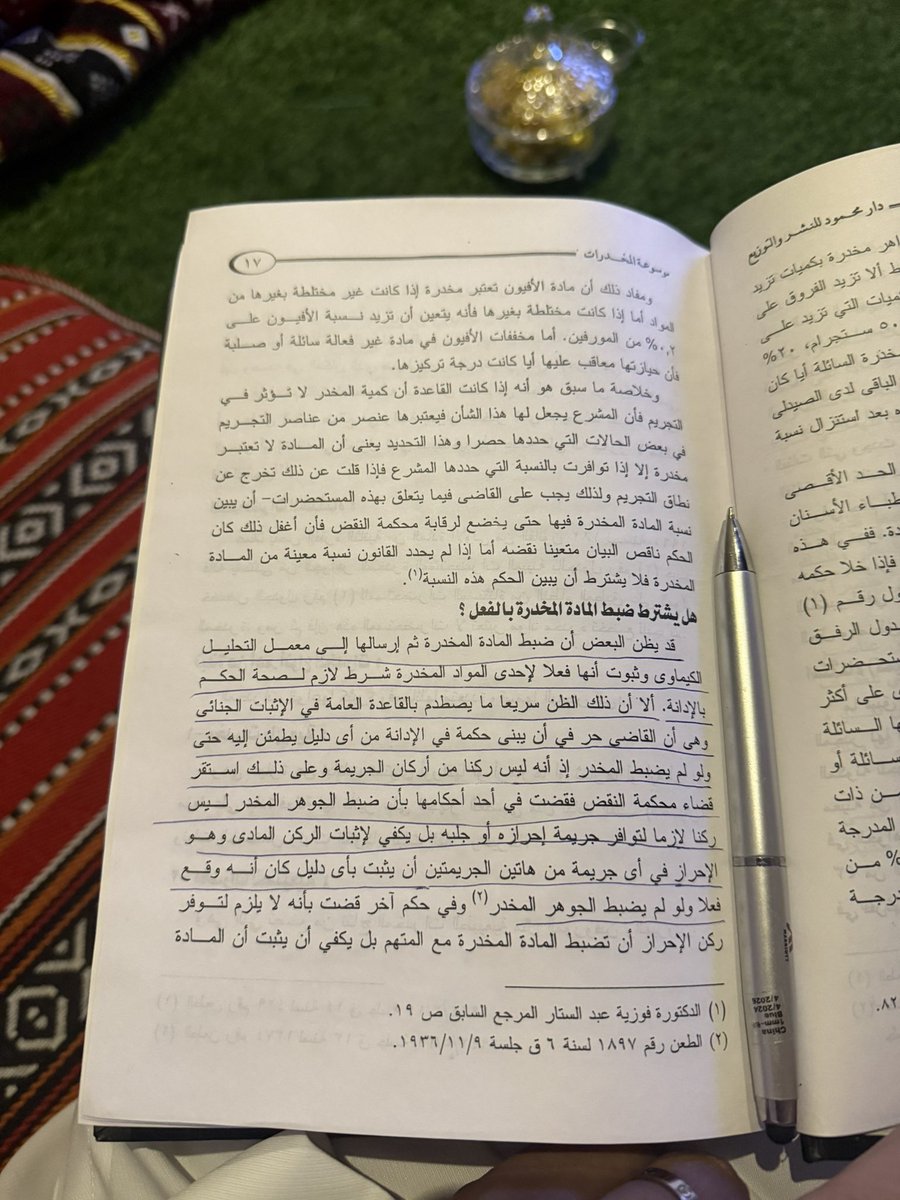 موسوعة المخدرات
١٧
ومفاد ذلك أن مادة الأفيون تعتبر مخدرة إذا كانت غير مختلطة بغيرها من
المواد أما إذا كانت مختلطة بغيرها فأنه يتعين أن تزيد نسبة الأفيون على
٠,٢% من المورفين. أما مخففات الأفيون في مادة غير فعالة سائلة أو صلبة
فأن حيازتها معاقب عليها أيا كانت درجة تركيزها.
وخلاصة ما سبق هو أنه إذا كانت القاعدة أن كمية المخدر لا تؤثر في
التجريم فأن المشرع يجعل لها هذا الشأن فيعتبرها عنصر من عناصر التجريم
في بعض الحالات التي حددها حصرا وهذا التحديد يعنى أن المادة لا تعتبر
مخدرة إلا إذا توافرت بالنسبة التي حددها المشرع فإذا قلت عن ذلك تخرج عن
نطاق التجريم ولذلك يجب على القاضى فيما يتعلق بهذه المستحضرات- أن يبين
نسبة المادة المخدرة فيها حتى يخضع لرقابة محكمة النقض فأن أغفل ذلك كان
الحكم ناقص البيان متعينا نقضه أما إذا لم يحدد القانون نسبة معينة من المادة
المخدرة فلا يشترط أن يبين الحكم هذه النسبة(١).
هل يشترط ضبط المادة المخدرة بالفعل ؟
قد يظن البعض أن ضبط المادة المخدرة ثم إرسالها إلى معمل التحليل
الكيماوى وثبوت أنها فعلا لإحدى المواد المخدرة شرط لازم لصحة الحكم
بالإدانة. ألا أن ذلك الظن سريعا ما يصطدم بالقاعدة العامة في الإثبات الجنائى
وهى أن القاضي حر في أن يبنى حكمة في الإدانة من أى دليل يطمئن إليه حتى
ولو لم يضبط المخدر إذ أنه ليس ركنا من أركان الجريمة وعلى ذلك استقر
قضاء محكمة النقض فقضت في أحد أحكامها بأن ضبط الجوهر المخدر ليس
ركنا لازما لتوافر جريمة إحرازه أو جلبه بل يكفي لإثبات الركن المادى وهو
الإحراز في أى جريمة من هاتين الجريمتين أن يثبت بأى دليل كان أنه وقع
فعلا ولو لم يضبط الجوهر المخدر(٢) وفي حكم آخر قضت بأنه لا يلزم لتوفر
ركن الإحراز أن تضبط المادة المخدرة مع المتهم بل يكفي أن يثبت أن المادة
(١) الدكتورة فوزية عبد الستار المرجع السابق ص ١٩.
(٢) الطعن رقم ١٨٩٧ لسنة ٦ ق جلسة ١٩٣٦/١١/٩.
دار محمود للنشر والتوزيع
مخدرة بكميات تزيد
ألا تزيد الفروق على
التي تزيد على
٥٠ سنتجرام، ٢٠%
السائلة أيا كان
الباقى لدى الصيدلى
بعد استنزال نسبة
الحد الأقصى
الأسنان
ففي هذه
فإذا خلا حكمه
رقم (١)
الرفق
على أكثر
السائلة
أو
من ذات
المدرجة
% من
China
1mm-
Blue
4/2024
4/2026